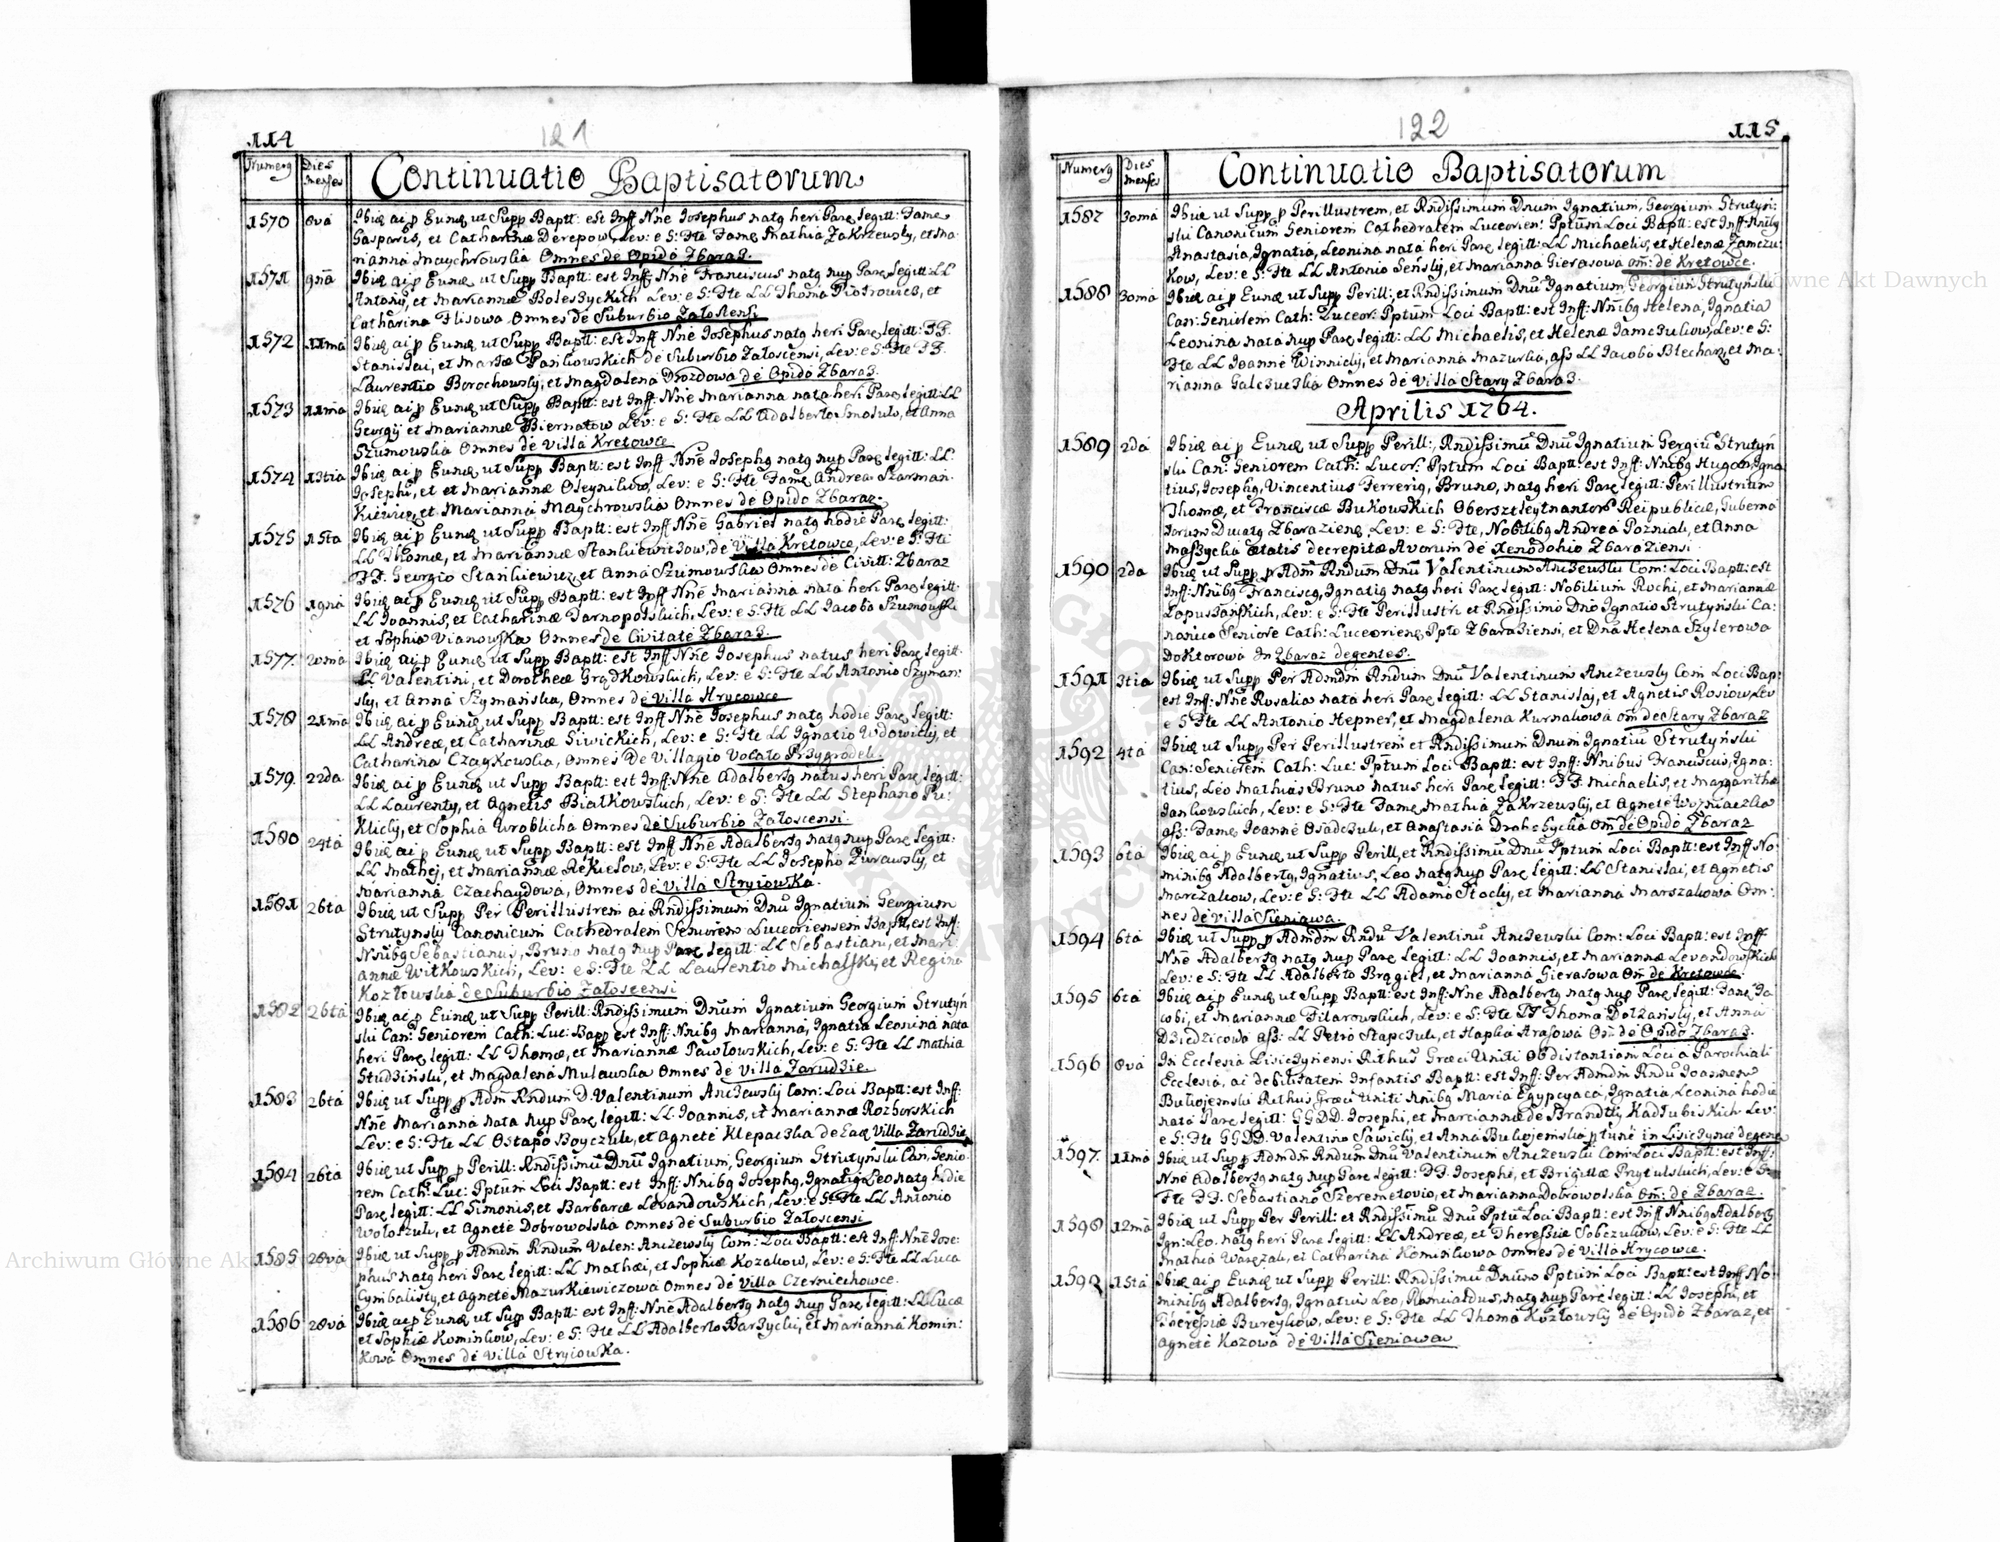 114
121
Numerq Dies menses Continuatio Baptisatorum
1570 8va Ibiq ai p Eunq ut Supp Baptt: est Inff Nne Josephus natq heri Parę legitt: Famę
Gasparis, et Catharinæ Derepow, Lev: e S: Fte Famę Mathia Zakrzewsky, et Ma-
rianna Maychrowska Omnes de Opido Zbaraz.
1571 9na Ibiq ai p Eunq ut Supp Baptt: est Inff Nne Franciscus natq nup Parę legitt: LL
Antony, et Mariannæ Boleszyckich Lev: e S: Fte LL Thoma Piotrowicz, et
Catharina Flisowa Omnes de Suburbio Załoscensi
1572 11ma Ibiq ai p Eunq ut Supp Baptt: est Inff Nne Josephus natq heri Parę legitt: FF.
Stanislai, et Mariæ Pankowskich de Suburbio Załoscensi, Lev: e S: Fte FF.
Laurentio Borochowsky, et Magdalena Drozdowa de Opido Zbaraz.
1573 11ma Ibiq ai p Eunq ut Supp Baptt: est Inff Nne Marianna nata heri Parę legitt: LL
Georgij et Mariannæ Biernatow Lev: e S: Fte LL Adalberto Smoluk, et Anna
Szumowska Omnes de Villa Kretowce
1574 13tia Ibiq ai p Eunq ut Supp Baptt: est Inff Nne Josephq natq nup Parę legitt: LL
Josephi, et et Mariannæ Oleynikow, Lev: e S: Fte Famę Andrea Szarman-
kiewicz, et Marianna Maychrowska Omnes de Opido Zbaraz.
1575 15ta Ibiq ai p Eunq ut Supp Baptt: est Inff Nne Gabriel natq hodie Parę legitt:
LL Thomæ, et Mariannæ Stankiewiczow, de Villa Kretowce, Lev: e S: Fte
FF. Georgio Stankiewicz, et Anna Szumowska Omnes de Civitt: Zbaraz
1576 19na Ibiq ai p Eunq ut Supp Baptt: est Inff Nne Marianna nata heri Parę legitt:
LL Joannis, et Catharinæ Tarnopolskich, Lev: e S: Fte LL Jacobo Szumowski
et Sophia Vianowska Omnes de Civitate Zbaraz.
1577. 20ma Ibiq ai p Eunq ut Supp Baptt: est Inff Nne Josephus natus heri Parę legitt:
LL Valentini, et Dorotheæ Grądkowskich, Lev: e S: Fte LL Antonio Szyman-
sky, et Anna Szymańska, Omnes de Villa Hrycowce
1578 21ma Ibiq ai p Eunq ut Supp Baptt: est Inff Nne Josephus natq hodie Parę legitt:
LL Andreæ, et Catharinæ Siwickich, Lev: e S: Fte LL Ignatio Wdowicky, et
Catharina Czaykowska, Omnes de Villagio Vocato Przygrodek
1579. 22da Ibiq ai p Eunq ut Supp Baptt: est Inff: Nne Adalbertq natus heri Parę legitt:
LL Laurenty, et Agnetis Białkowskich, Lev: e S: Fte LL Stephano Pu-
klicky, et Sophia Wroblicha Omnes de Suburbio Załoscensi.
1580 24ta Ibiq ai p Eunq ut Supp Baptt: est Inff Nne Adalbertq natq nup Parę legitt:
LL Mathej, et Mariannæ Rekiesow, Lev: e S: Fte LL Josepho Zurawsky, et
Marianna Czachaydowa, Omnes de Villa Stryiowka.
1581 26ta Ibiq ut Supp Per Perillustrem ac Rndissimum Dnū Ignatium Georgium
Strutynsky Canonicum Cathedralem Seniorem Luceoriensem Baptt, est Inf:
Nnibq Sebastianus, Bruno natq nup Parę legitt: LL Sebastiani, et Mari-
annæ Witkowskich, Lev: e S: Fte LL Laurentio Michalski, et Regina
Kozłowska de Suburbio Załoscensi
1582 26ta Ibiq ai p Eunq ut Supp Perill: Rndissimum Dnum Ignatium Georgium Strutyń
ski Can: Seniorem Cath: Luc: Bapp est Inff: Nnibq Marianna, Ignatia Leonina nata
heri Parę legitt: LL Thomæ, et Mariannæ Pawłowskich, Lev: e S: Fte LL Mathia
Studziński, et Magdalena Mulawska Omnes de Villa Zarudzie.
1583 26ta Ibiq ut Supp p Adm Rndum D. Valentinum Anczewsky Com: Loci Baptt: est Inff:
Nne Marianna nata nup Parę legitt: LL Joannis, et Mariannæ Rozborskich
Lev: e S: Fte LL Ostapo Boyczuk, et Agnete Klepaczka de Eaq Villa Zarudzie
1584 26ta Ibiq ut Supp p Perill: Rndissimū Dnū Ignatium, Georgium Strutyński Can, Senio-
rem Cath: Luc: Pptum Loci Baptt: est Inff: Nnibq Josephq, Ignatiq Leo natq hodie
Parę legitt: LL Simonis, et Barbaræ Levandowskich, Lev: e S: Fte LL Antonio
Wołoszuk, et Agnete Dobrowolska Omnes de Suburbio Załoscensi
1585 28va Ibiq ut Supp p Admdm Rndum Valen: Anczewsky Com: Loci Baptt: est Inff: Nne Jose-
phus natq heri Parę legitt: LL Mathæi, et Sophiæ Kozakow, Lev: e S: Fte LL Luca
Cymbalisty, et Agnete Mazurkiewiczowa Omnes de Villa Czerniechowce.
1586 28va Ibiq ai p Eunq ut Supp Baptt: est Inff: Nne Adalbertq natq nup Parę legitt: LL Lucæ
et Sophiæ Kominkow, Lev: e S: Fte LL Adalberto Barzycki, et Marianna Komin-
kowa Omnes de Villa Stryiowka.
122
115
Numerq Dies menses Continuatio Baptisatorum
1587 30ma Ibiq ut Supp p Perillustrem, et Rndissimum Dnum Ignatium, Georgium Strutyń-
ski Canonicum Seniorem Cathedralem Luceorien: Pptum Loci Baptt: est Inff: Nnibq
Anastasia, Ignatia, Leonina nata heri Parę legitt: LL Michaelis, et Helenæ Zamczu-
kow, Lev: e S: Fte LL Antonio Seńsky, et Marianna Gierasowa om: de Kretowce.
1588 30ma Ibiq ai p Eunq ut Supp Perill: et Rndissimum Dnū Ignatium, Georgium Strutyński
Can: Seniorem Cath: Luceor: Pptum Loci Baptt: est Inff: Nnibq Helena, Ignatia
Leonina nata nup Parę legitt: LL Michaelis, et Helenæ Jamczukow, Lev: e S:
Fte LL Joanne Winnicky, et Marianna Mazurka, ass LL Jacobo Blecharz, et Ma-
rianna Galczuczka Omnes de Villa Stary Zbaraz.
Aprilis 1764.
1589 2da Ibiq ai p Eunq ut Supp Perill:, Rndissimū Dnū Ignatium Gergiū Strutyń
ski Can: Seniorem Cath: Lucor: Pptum Loci Baptt: est Inff: Nnibq Hugo, Igna
tius, Josephq, Vincentius Ferreriq, Bruno, natq heri Parę legitt: Perillustrium
Thomæ, et Franciscæ Bukowskich Obersztleytnantow Reipublicæ, Guberna
torum Ducatq Zbarazienq, Lev: e S: Fte, Nobilibq Andrea Pozniak, et Anna
Maszycka ætatis decrepitæ Avorum de Xenodohio Zbaraziensi
1590 2da Ibiq ut Supp p Adm Rndum Dnū Valentinum Anczewski Com: Loci Baptt: est
Inff: Nnibq Franciscq, Ignatiq natq heri Parę legitt: Nobilium Rochi, et Mariannæ
Lopuszańskich, Lev: e S: Fte Perillustri et Rndissimo Dno Ignatio Strutyński Ca-
nonico Seniore Cath: Luceorienq Ppto Zbaraziensi, et Dna Helena Szylerowa
Doktorowa In Zbaraz degentes.
1591 3tia Ibiq ut Supp Per Admdm Rndum Dnū Valentinum Anczewsky Com Loci Bap:
est Inff: Nne Rosalia nata heri Parę legitt: LL Stanislaj, et Agnetis Rosiow, Lev
e S: Fte LL Antonio Hepner, et Magdalena Kurnakowa om de Stary Zbaraz
1592 4ta Ibiq ut Supp Per Perillustrem et Rndissimum Dnum Ignatiū Strutyński
Can: Seniorem Cath: Luc: Pptum Loci Baptt: est Inff: Nnibus Franciscus, Igna-
tius, Leo Mathias Bruno natus heri Parę legitt: FF. Michaelis, et Margarithæ
Jankowskich, Lev: e S: Fte Famę Mathia Zakrzewsky, et Agnete Wozniaczka
ass: Famę Joanne Osadczuk, et Anastasia Drohobycka Om de Opido Zbaraz
1593 6ta Ibiq ai p Eunq ut Supp Perill, et Rndissimū Dnū Pptum Loci Baptt: est Inff No-
minibq Adalbertq, Ignatius, Leo natq nup Parę legitt: LL Stanislai, et Agnetis
Marczakow, Lev: e S: Fte LL Adamo Stocky, et Marianna Marszakowa Om-
nes de Villa Sieniawa.
1594 6ta Ibiq ut Supp p Admdm Rndū Valentinū Anczewski Com: Loci Baptt: est Inff.
Nne Adalbertq natq nup Parę legitt: LL Joannis, et Mariannæ Levandowskich
Lev: e S: Fte LL Adalberto Brągiel, et Marianna Gierasowa Om de Kretowce.
1595 6ta Ibiq ai p Eunq ut Supp Baptt: est Inff: Nne Adalbertq natq nup Parę legitt: Famę Ja-
cobi, et Mariannæ Filarowskich, Lev: e S: Fte FF Thoma Dolzansky, et Anna
Dziedzicowa ass: LL Petro Stapczuk, et Hapka Arasowa Om: de Opido Zbaraz.
1596 8va In Ecclesia Lisiczynensi Rithus Græci Uniti Ob distantiam Loci a Parochiali
Ecclesia, ai debilitatem Infantis Baptt: est Inff: Per Admdm Rndū Joannem
Bukojemski Rithus, Græci Uniti Nnibq Maria Egypcyaca, Ignatia, Leonina hodie
nata Parę legitt: GG DD. Josephi, et Marciannæ de Brandtky Kadłubiskich Lev:
e S: Fte GG DD. Valentino Sawicky, et Anna Bukojemska ptunę in Lisiczynie degenq
1597. 11ma Ibiq ut Supp p Admdm Rndum Dnū Valentinum Anczewski Com: Loci Baptt: est Inff:
Nne Adalbertq natq nup Parę legitt: FF. Josephi, et Brigittæ Prytulskich, Lev: e S:
Fte FF. Sebastiano Szeremetovio, et Marianna Dobrowolska Om: de Zbaraz.
1598 12ma Ibiq ut Supp Per Perill: et Rndissimū Dnū Pptū Loci Baptt: est Inff Nnibq Adalbertq
Ign: Leo. natq heri Parę legitt: LL Andreæ, et Theressiæ Sobczukow, Lev: e S: Fte LL
Mathia Waręzak, et Catharina Kominkowa Omnes de Villa Hrycowce.
1599 15ta Ibiq ai p Eunq ut Supp Perill: Rndissimū Dnum Pptum Loci Baptt: est Inff No-
minibq Adalbertq, Ignatius Leo, Romualdus, natq nup Parę legitt: LL Josephi, et
Theressiæ Bureykow, Lev: e S: Fte LL Thoma Kozłowsky de Opido Zbaraz, et
Agnete Kozowa de Villa Sieniawa
Archiwum Główne Akt Dawnych